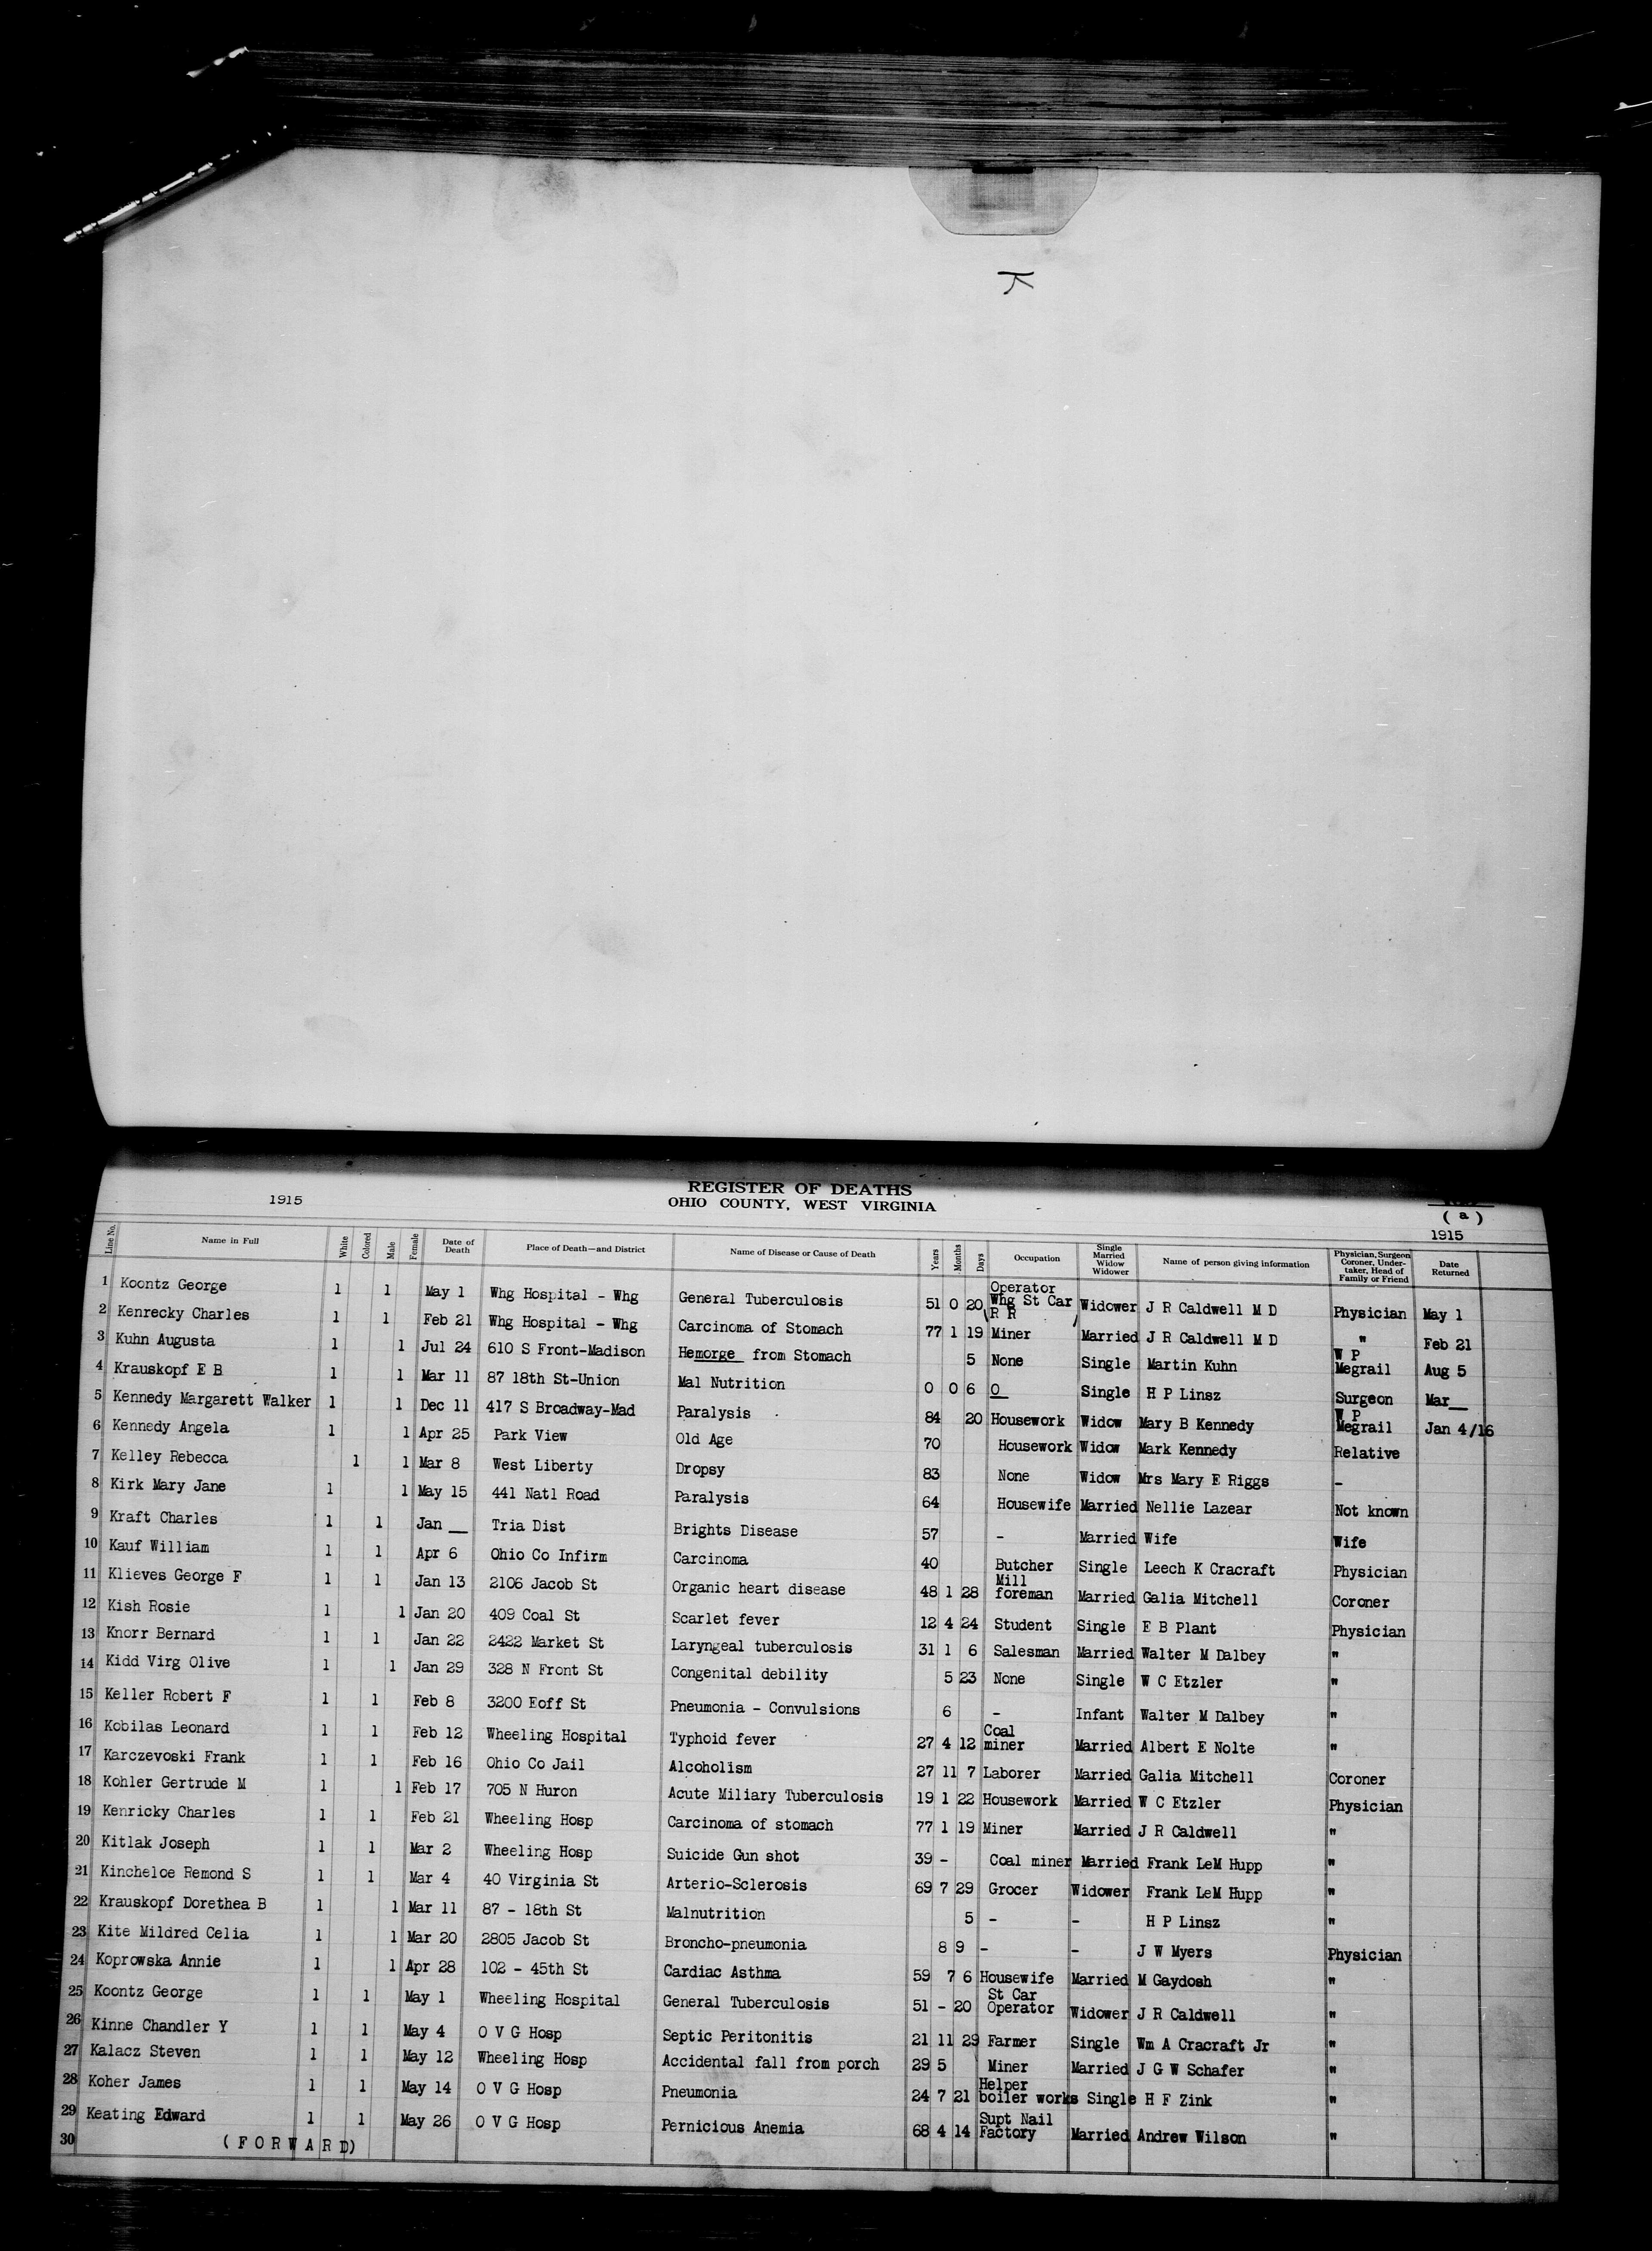 K
REGISTER OF DEATHS
1915 OHIO COUNTY, WEST VIRGINIA
( a )
1915
Line No. Name in Full White Colored Male Female Date of Death Place of Death—and District Name of Disease or Cause of Death Years Months Days Occupation Single Married Widow Widower Name of person giving information Physician, Surgeon Coroner, Undertaker, Head of Family or Friend Date Returned
1 Koontz George 1 1 May 1 Whg Hospital - Whg General Tuberculosis 51 0 20 Operator Whg St Car R R Widower J R Caldwell M D Physician May 1
2 Kenrecky Charles 1 1 Feb 21 Whg Hospital - Whg Carcinoma of Stomach 77 1 19 Miner Married J R Caldwell M D " Feb 21
3 Kuhn Augusta 1 1 Jul 24 610 S Front-Madison Hemorge from Stomach 5 None Single Martin Kuhn W P Megrail Aug 5
4 Krauskopf E B 1 1 Mar 11 87 18th St-Union Mal Nutrition 0 0 6 0 Single H P Linsz Surgeon Mar__
5 Kennedy Margarett Walker 1 1 Dec 11 417 S Broadway-Mad Paralysis 84 20 Housework Widow Mary B Kennedy W P Megrail Jan 4/16
6 Kennedy Angela 1 1 Apr 25 Park View Old Age 70 Housework Widow Mark Kennedy Relative
7 Kelley Rebecca 1 1 Mar 8 West Liberty Dropsy 83 None Widow Mrs Mary E Riggs -
8 Kirk Mary Jane 1 1 May 15 441 Natl Road Paralysis 64 Housewife Married Nellie Lazear Not known
9 Kraft Charles 1 1 Jan __ Tria Dist Brights Disease 57 - Married Wife Wife
10 Kauf William 1 1 Apr 6 Ohio Co Infirm Carcinoma 40 Butcher Single Leech K Cracraft Physician
11 Klieves George F 1 1 Jan 13 2106 Jacob St Organic heart disease 48 1 28 Mill foreman Married Galia Mitchell Coroner
12 Kish Rosie 1 1 Jan 20 409 Coal St Scarlet fever 12 4 24 Student Single E B Plant Physician
13 Knorr Bernard 1 1 Jan 22 2422 Market St Laryngeal tuberculosis 31 1 6 Salesman Married Walter M Dalbey "
14 Kidd Virg Olive 1 1 Jan 29 328 N Front St Congenital debility 5 23 None Single W C Etzler "
15 Keller Robert F 1 1 Feb 8 3200 Eoff St Pneumonia - Convulsions 6 - Infant Walter M Dalbey "
16 Kobilas Leonard 1 1 Feb 12 Wheeling Hospital Typhoid fever 27 4 12 Coal miner Married Albert E Nolte "
17 Karczevoski Frank 1 1 Feb 16 Ohio Co Jail Alcoholism 27 11 7 Laborer Married Galia Mitchell Coroner
18 Kohler Gertrude M 1 1 Feb 17 705 N Huron Acute Miliary Tuberculosis 19 1 22 Housework Married W C Etzler Physician
19 Kenricky Charles 1 1 Feb 21 Wheeling Hosp Carcinoma of stomach 77 1 19 Miner Married J R Caldwell "
20 Kitlak Joseph 1 1 Mar 2 Wheeling Hosp Suicide Gun shot 39 - Coal miner Married Frank LeM Hupp "
21 Kincheloe Remond S 1 1 Mar 4 40 Virginia St Arterio-Sclerosis 69 7 29 Grocer Widower Frank LeM Hupp "
22 Krauskopf Dorethea B 1 1 Mar 11 87 - 18th St Malnutrition 5 - - H P Linsz "
23 Kite Mildred Celia 1 1 Mar 20 2805 Jacob St Broncho-pneumonia 8 9 - - J W Myers Physician
24 Koprowska Annie 1 1 Apr 28 102 - 45th St Cardiac Asthma 59 7 6 Housewife Married M Gaydosh "
25 Koontz George 1 1 May 1 Wheeling Hospital General Tuberculosis 51 - 20 St Car Operator Widower J R Caldwell "
26 Kinne Chandler Y 1 1 May 4 O V G Hosp Septic Peritonitis 21 11 29 Farmer Single Wm A Cracraft Jr "
27 Kalacz Steven 1 1 May 12 Wheeling Hosp Accidental fall from porch 29 5 Miner Married J G W Schafer "
28 Koher James 1 1 May 14 O V G Hosp Pneumonia 24 7 21 Helper boiler works Single H F Zink "
29 Keating Edward 1 1 May 26 O V G Hosp Pernicious Anemia 68 4 14 Supt Nail Factory Married Andrew Wilson "
30 ( F O R W A R D )